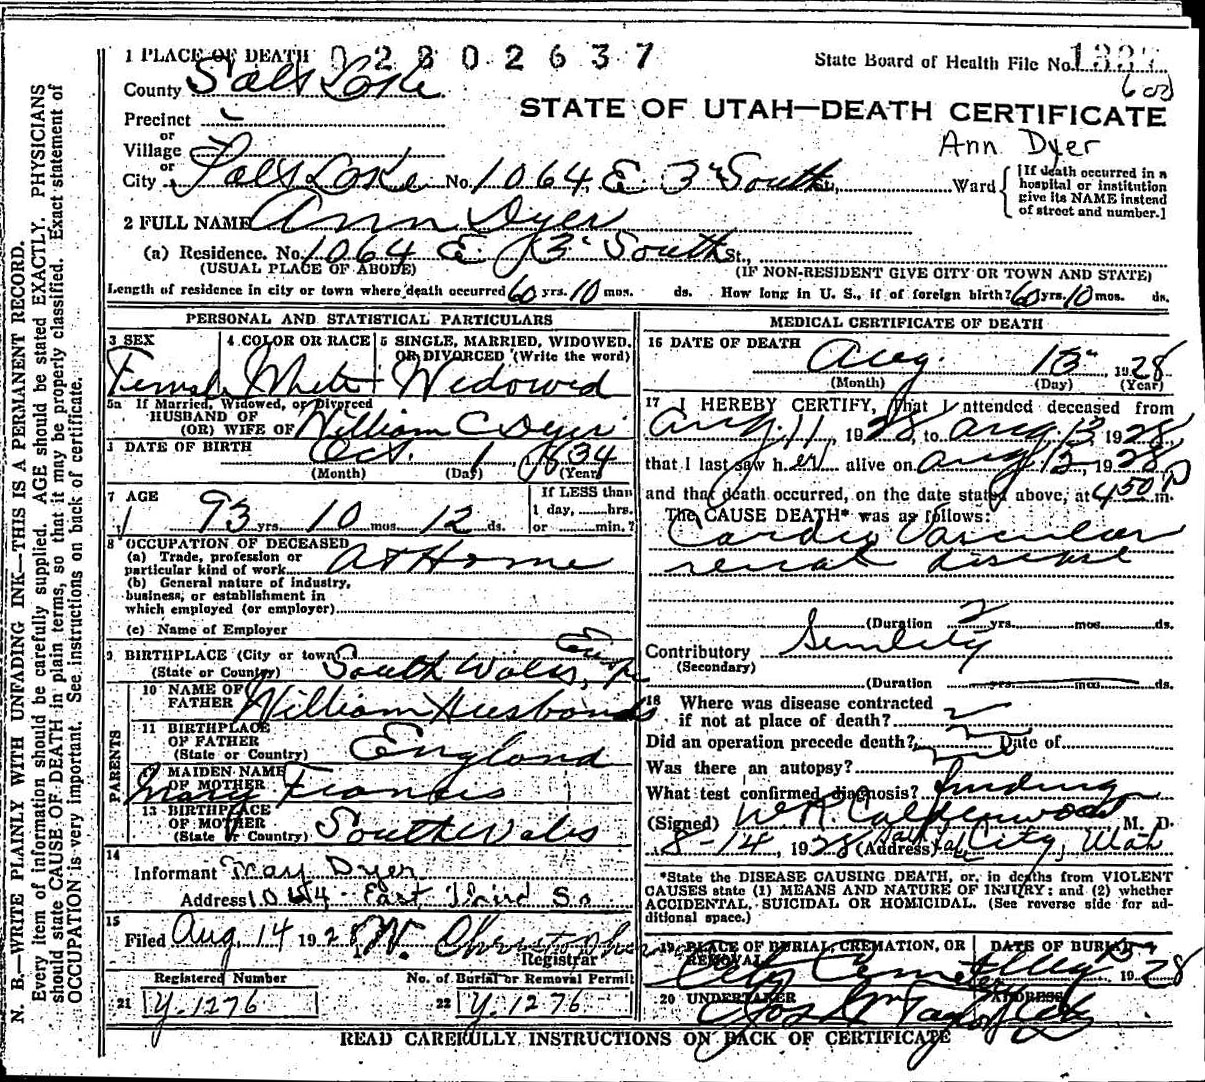 1 PLACE OF DEATH 02802637
State Board of Health File No.
County Salt Lake
STATE OF UTAH—DEATH CERTIFICATE
Precinct
or
Village
Ann Dyer
or
City Salt Lake No. 1064 E 3" South St., Ward {[If death occurred in a hospital or institution give its NAME instead of street and number.]
2 FULL NAME Ann Dyer
(a) Residence. No. 1064 E 3" South St.,
(USUAL PLACE OF ABODE) (IF NON-RESIDENT GIVE CITY OR TOWN AND STATE)
Length of residence in city or town where death occurred 60 yrs. 10 mos. ds. How long in U. S., if of foreign birth? 60 yrs. 10 mos. ds.
PERSONAL AND STATISTICAL PARTICULARS
3 SEX
Female
4 COLOR OR RACE
White
5 SINGLE, MARRIED, WIDOWED, OR DIVORCED (Write the word)
Widowed
5a If Married, Widowed, or Divorced
HUSBAND OF
(OR) WIFE OF William C Dyer
6 DATE OF BIRTH Oct. 1, 1834
(Month) (Day) (Year)
7 AGE
93 yrs. 10 mos. 12 ds.
If LESS than
1 day, hrs.
or min.?
8 OCCUPATION OF DECEASED
(a) Trade, profession or
particular kind of work At Home
(b) General nature of industry,
business, or establishment in
which employed (or employer)
(c) Name of Employer
9 BIRTHPLACE (City or town)
(State or Country) South Wales, Europe
PARENTS
10 NAME OF
FATHER William Husbands
11 BIRTHPLACE
OF FATHER
(State or Country) England
12 MAIDEN NAME
OF MOTHER Mary Francis
13 BIRTHPLACE
OF MOTHER
(State or Country) South Wales
14
Informant May Dyer
Address 1064 East Third So
15
Filed Aug 14 1928 W. Christopherson
Registrar
Registered Number No. of Burial or Removal Permit
21 Y.1276 22 Y.1276
MEDICAL CERTIFICATE OF DEATH
16 DATE OF DEATH
Aug. 13" 1928
(Month) (Day) (Year)
17 I HEREBY CERTIFY, That I attended deceased from
Aug. 11, 1928, to Aug. 13, 1928
that I last saw her alive on Aug. 13, 1928
and that death occurred, on the date stated above, at 4 50 P m.
The CAUSE DEATH* was as follows:
Cardio Vascular
renal disease
(Duration 2 yrs. mos. ds.
Contributory Senility
(Secondary)
(Duration yrs. mos. ds.
18 Where was disease contracted
if not at place of death?
Did an operation precede death? Date of
Was there an autopsy?
What test confirmed diagnosis? findings
(Signed) W.R. Calderwood M. D.
8-14, 1928 (Address) Salt Lake City, Utah
*State the DISEASE CAUSING DEATH, or, in deaths from VIOLENT
CAUSES state (1) MEANS AND NATURE OF INJURY; and (2) whether
ACCIDENTAL, SUICIDAL OR HOMICIDAL. (See reverse side for ad-
ditional space.)
19 PLACE OF BURIAL, CREMATION, OR REMOVAL
City Cemetery
DATE OF BURIAL
Aug 15 1928
20 UNDERTAKER ADDRESS
Jos Wm Taylor City
READ CAREFULLY INSTRUCTIONS ON BACK OF CERTIFICATE
N. B.—WRITE PLAINLY WITH UNFADING INK—THIS IS A PERMANENT RECORD.
Every item of information should be carefully supplied. AGE should be stated EXACTLY. PHYSICIANS
should state CAUSE OF DEATH in plain terms, so that it may be properly classified. Exact statement of
OCCUPATION is very important. See instructions on back of certificate.